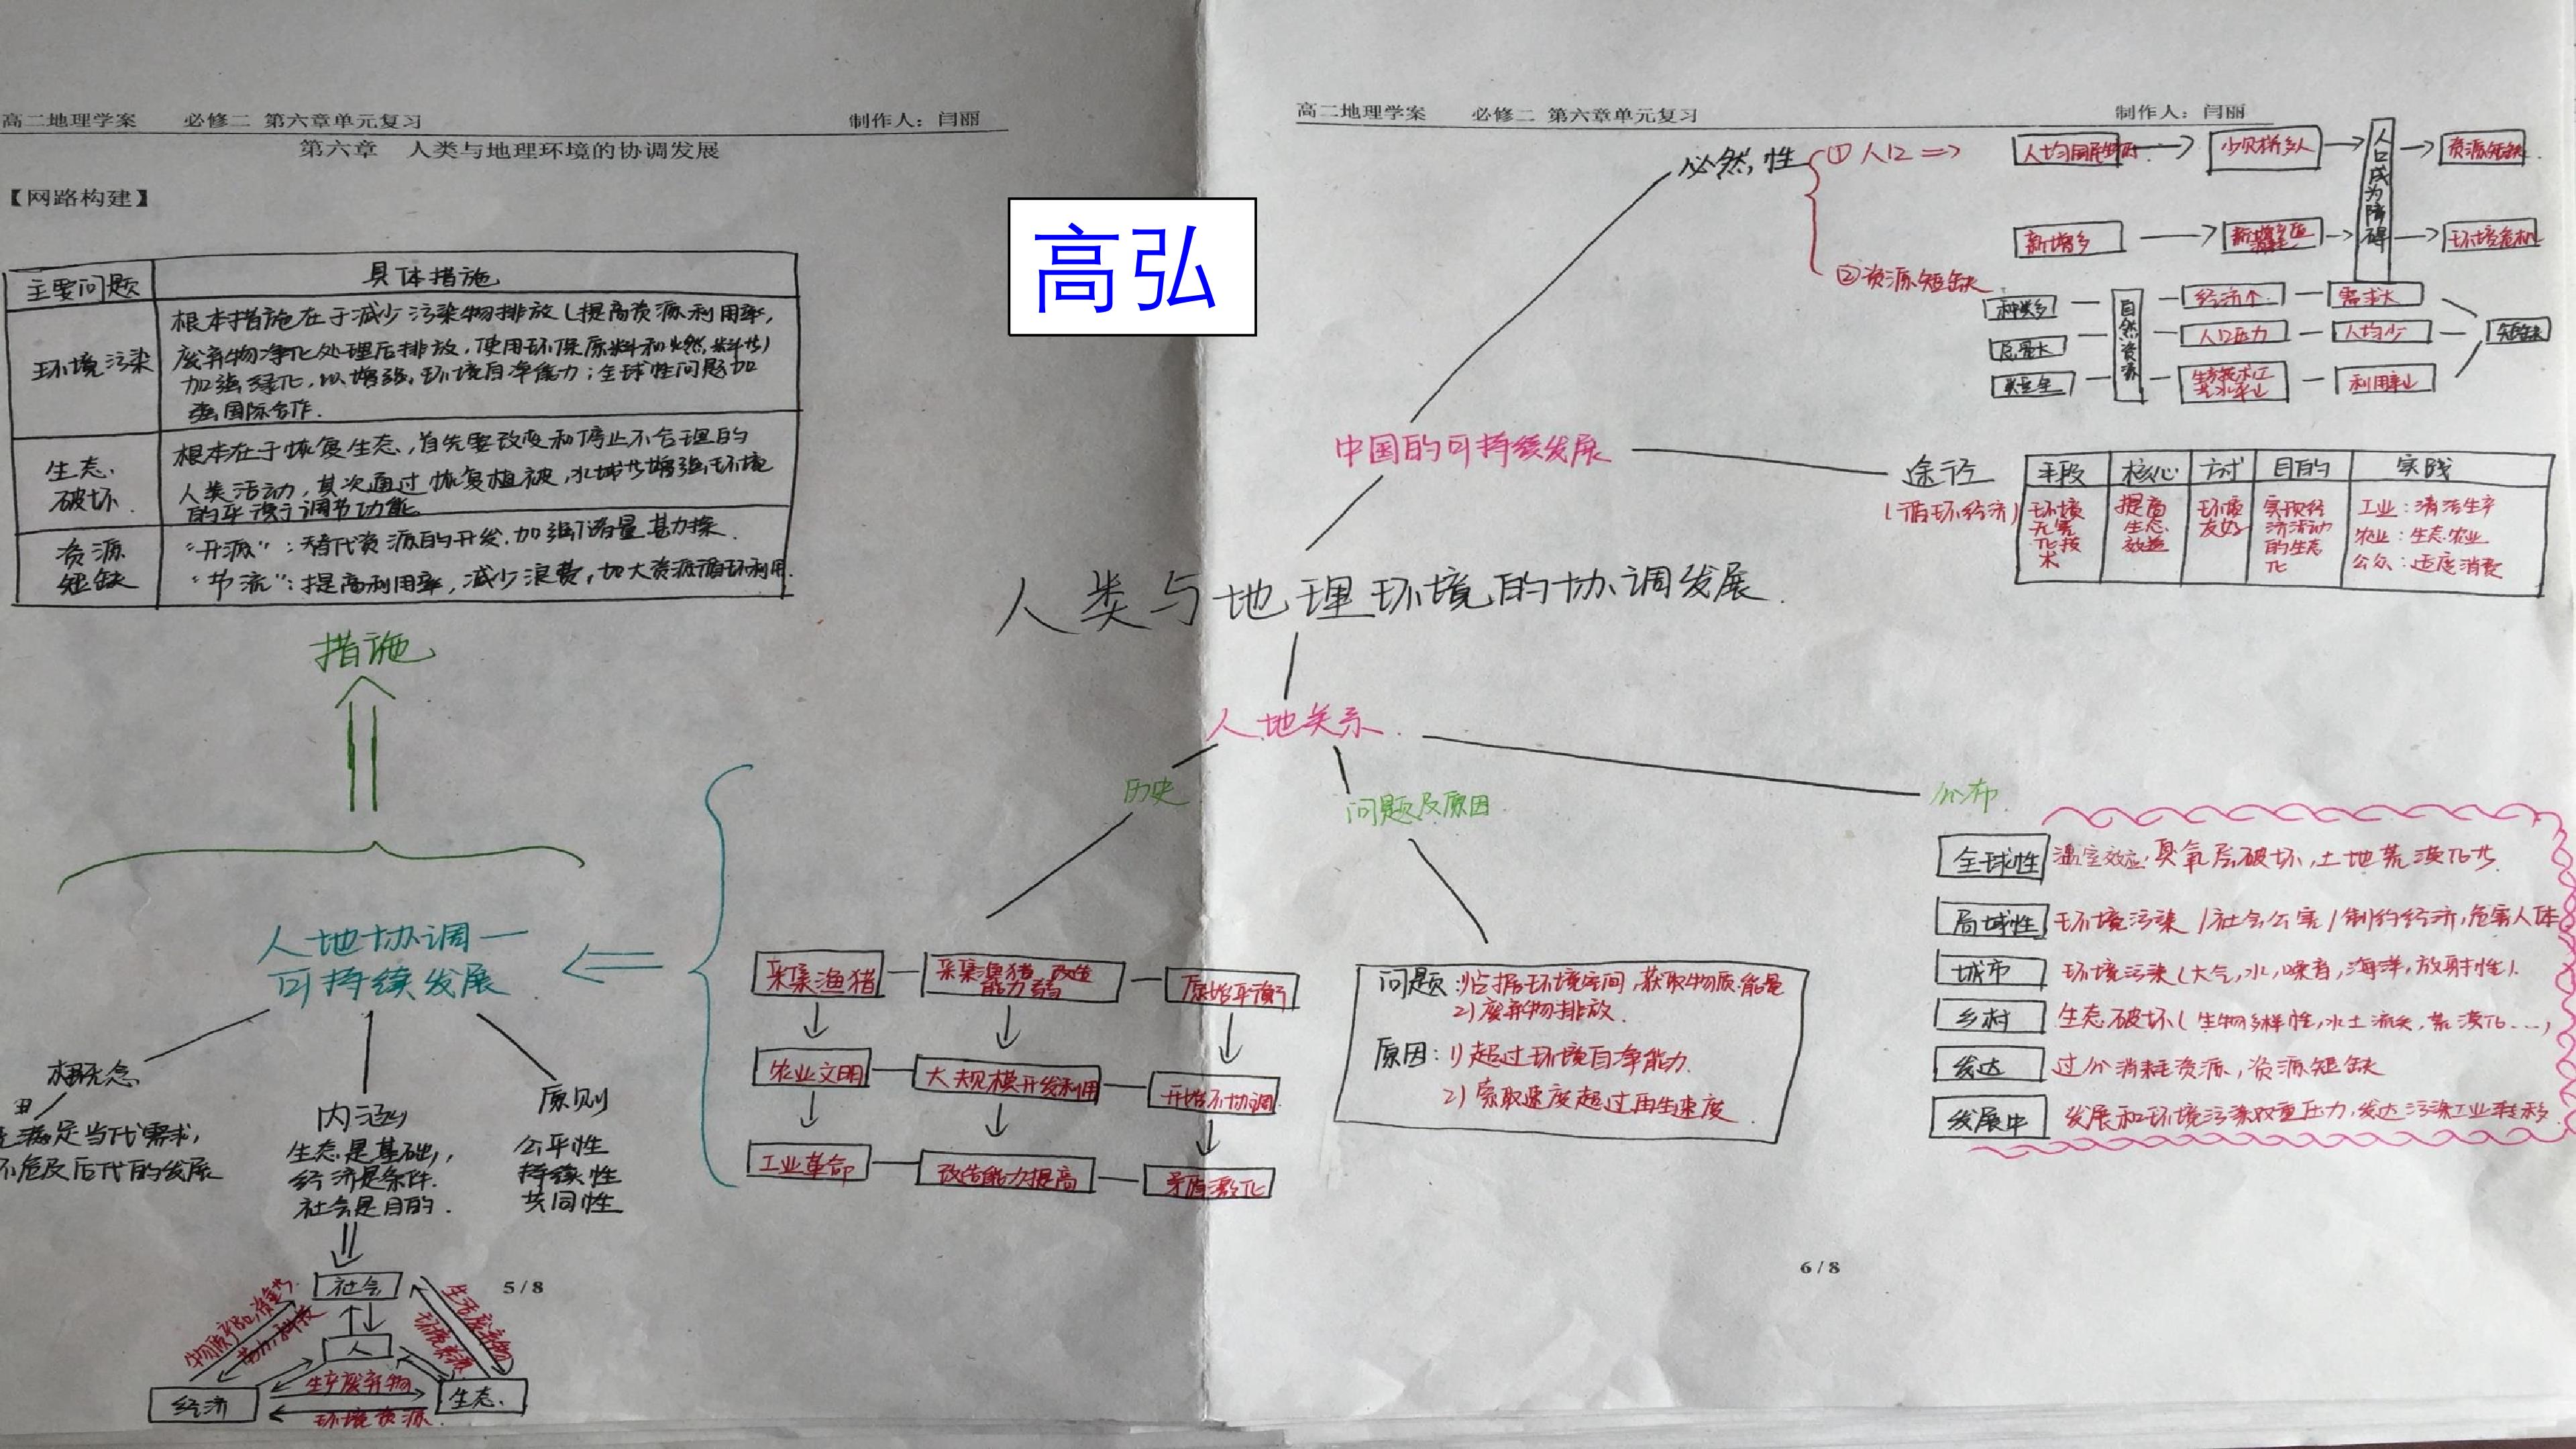 高二地理学案 必修二 第六章单元复习 制作人：闫丽
第六章 人类与地理环境的协调发展
【网路构建】
主要问题 具体措施
环境污染
根本措施在于减少污染物排放(提高资源利用率,
废弃物净化处理后排放,使用环保原料和燃料等)
加强绿化,以增强环境自净能力;全球性问题加
强国际合作.
生态
破坏
根本在于恢复生态,首先要改变和停止不合理的
人类活动,其次通过恢复植被,水域等增强环境
的平衡与调节功能
资源
短缺
“开源”:替代资源的开发,加强储量甚力探.
“节流”:提高利用率,减少浪费,加大资源循环利用.
措施
人地协调一
可持续发展
概念
满足当代需求,
不危及后代的发展
内涵
生态是基础,
经济是条件.
社会是目的.
原则
公平性
持续性
共同性
社会
人
经济
生态
生产废弃物
环境资源
生活废弃物
5/8
高弘
高二地理学案 必修二 第六章单元复习 制作人：闫丽
人类与地理环境的协调发展.
中国的可持续发展
必然性
①人口⇒
少见桥多人
人口成为障碍
资源短缺
新增多
环境危机
②资源短缺
种类多
总量大
类型全
自然资源
经济个
需求大
人口压力
人均少
利用率山
短缺
途径
(循环经济)
手段 核心 方式 目的 实践
环境
无害
化技
术
提高
生态
效益
环境
友好
实现经
济活动
的生态
化
工业:清洁生产
农业:生态农业
公众:适度消费
人地关系.
历史
问题及原因
分布
采集渔猪 采集渔猪 改造
能力弱 原始平衡
农业文明 大规模开发利用 开始不协调
工业革命 改造能力提高 矛盾激化
问题:1)占据环境空间,获取物质能量
2)废弃物排放.
原因:1)超过环境自净能力.
2)索取速度超过再生速度.
全球性 温室效应,臭氧层破坏,土地荒漠化等.
局域性 环境污染/社会公害/制约经济,危害人体
城市 环境污染(大气,水,噪音,海洋,放射性).
乡村 生态破坏(生物多样性,水土流失,荒漠化...)
发达 过分消耗资源,资源短缺
发展中 发展和环境污染双重压力,发达污染工业转移
6/8